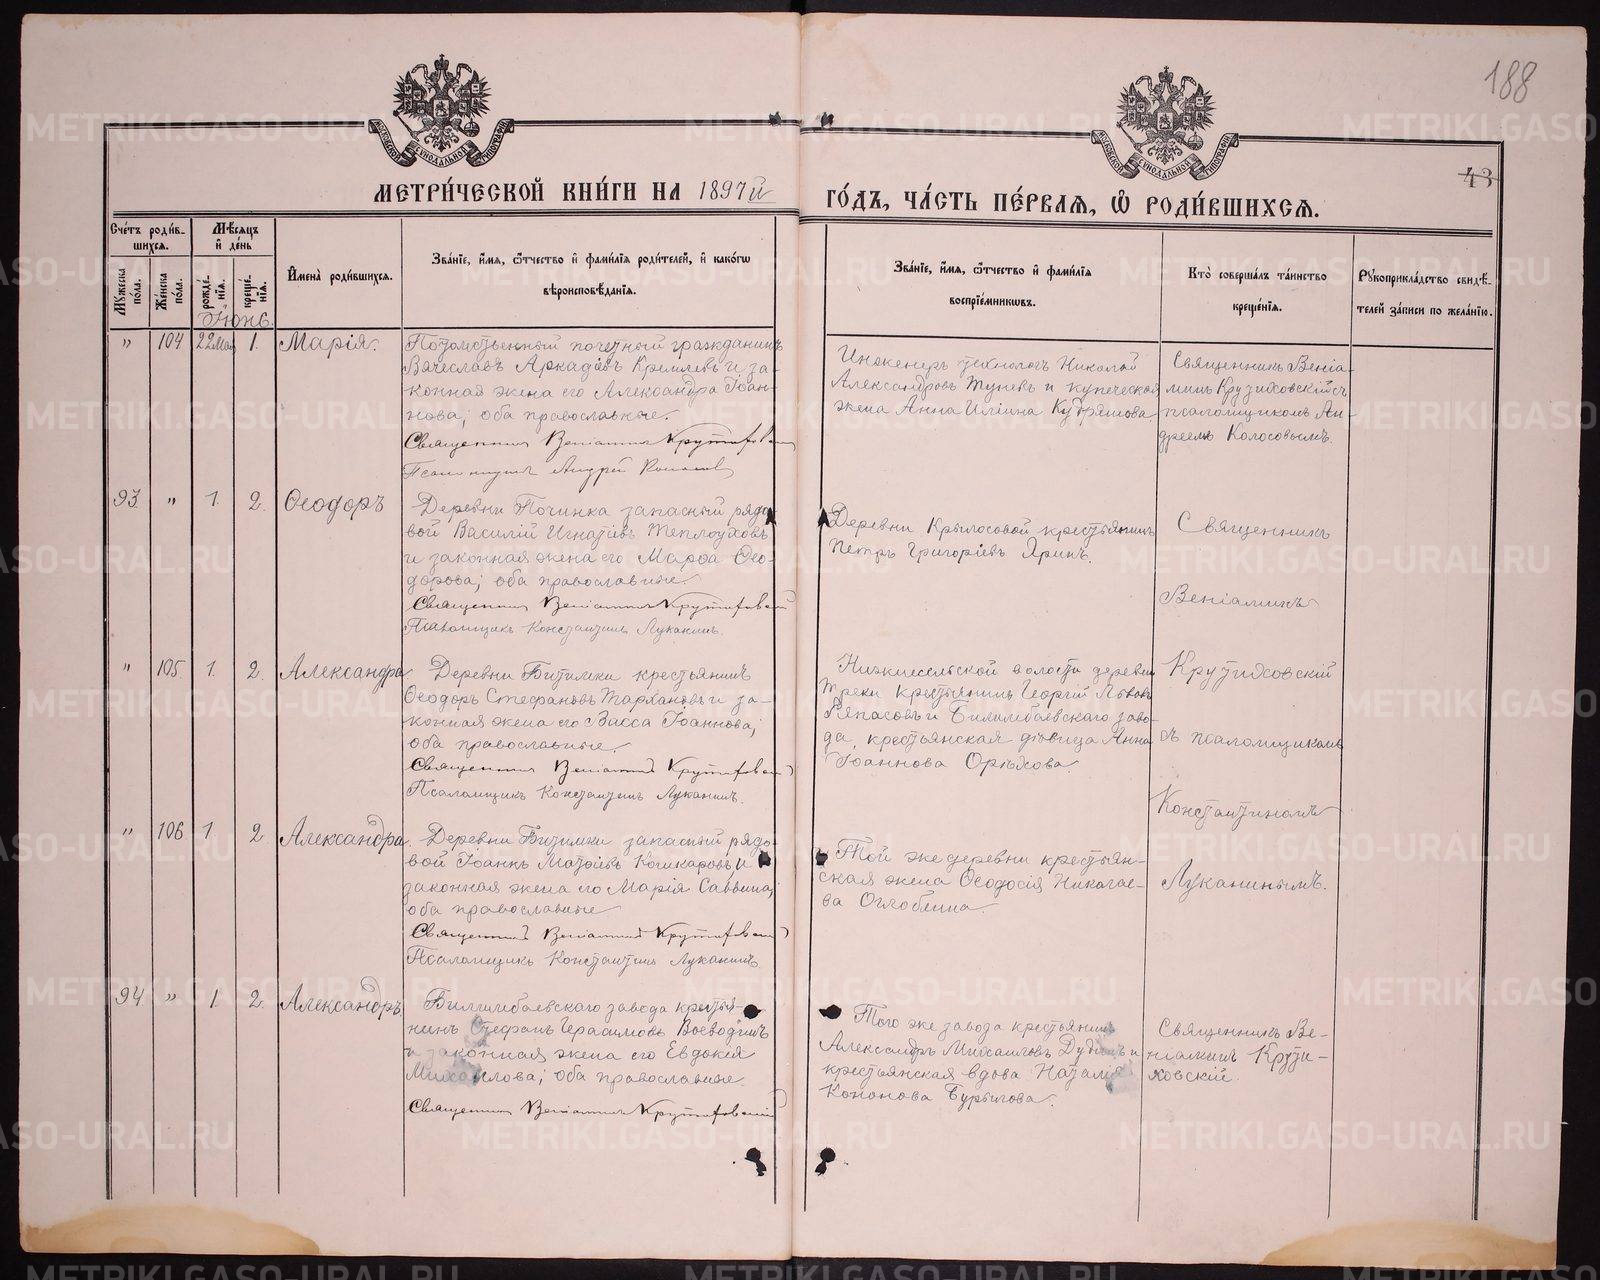 188
43
МЕТРИ́ЧЕСКОЙ КНИ́ГИ НА 1897й
ГО́ДЪ, ЧА́СТЬ ПЕ́РВАѦ, Ѡ҆ РОДИ́ВШИХСѦ.
Сче́тъ роди́в-
шихсѧ.
Мѣ́сѧцъ
и҆ де́нь
Мꙋ́жеска по́ла.
Же́нска по́ла.
рожде́-
нїѧ.
креще́-
нїѧ.
И҆мена̀ роди́вшихсѧ.
Зва́нїе, и҆́мѧ, ѻ҆́тчество и҆ фами́лїѧ роди́телей, и҆ како́гѡ
вѣроисповѣ́данїѧ.
Зва́нїе, и҆́мѧ, ѻ҆́тчество и҆ фами́лїѧ
воспрїе́мникѡвъ.
Кто̀ соверша́лъ та́инство
креще́нїѧ.
Рꙋкоприкла́дство свидѣ́-
телей за́писи по жела́нїю.
Іюнь.
" 104 22 Мая 1. Марія.
Потомственный почетный гражданинъ
Вячеславъ Аркадіевъ Кремлевъ и за-
конная жена его Александра Іоан-
нова; оба православные.
Священникъ Веніаминъ Крутиховскій
Псаломщикъ Андрей Колосовъ
Инженеръ технологъ Николай
Александровъ Туневъ и купеческая
жена Анна Иліина Кудряшова.
Священникъ Веніа-
минъ Крутиховскій съ
псаломщикомъ Ан-
дреемъ Колосовымъ.
93. " 1. 2. Ѳеодоръ
Деревни Починка запасный рядо-
вой Василій Игнатіевъ Теплоуховъ
и законная жена его Марѳа Ѳео-
дорова; оба православные.
Священникъ Веніаминъ Крутиховскій
Псаломщикъ Константинъ Луканинъ.
Деревни Крылосовой крестьянинъ
Петръ Григоріевъ Яринъ.
Священникъ
Веніаминъ
" 105. 1. 2. Александра.
Деревни Битимки крестьянинъ
Ѳеодоръ Стефановъ Тархановъ и за-
конная жена его Васса Іоаннова;
оба православные.
Священникъ Веніаминъ Крутиховскій
Псаломщикъ Константинъ Луканинъ.
Нижнесельской волости деревни
Треки крестьянинъ Георгій Львовъ
Ряпасовъ и Билимбаевскаго заво-
да, крестьянская дѣвица Анна
Іоаннова Орѣхова.
Крутиховскій
съ псаломщикомъ
Константиномъ
" 106 1. 2. Александра.
Деревни Битимки запасный рядо-
вой Іоаннъ Матѳіевъ Кошкаровъ и
законная жена его Марія Саввина;
оба православные
Священникъ Веніаминъ Крутиховскій
Псаломщикъ Константинъ Луканинъ
Той же деревни крестьян-
ская жена Ѳеодосія Николае-
ва Оглоблина.
Луканинымъ.
94 " 1 2. Александръ
Билимбаевскаго завода крестья-
нинъ Стефанъ Герасимовъ Воеводинъ
и законная жена его Евдокія
Михаилова; оба православные.
Священникъ Веніаминъ Крутиховскій
Того же завода крестьянинъ
Александръ Михаиловъ Дудинъ и
крестьянская вдова Наталія
Кононова Бурылова.
Священникъ Ве-
ніаминъ Крути-
ховскій.
METRIKI.GASO-URAL.RU